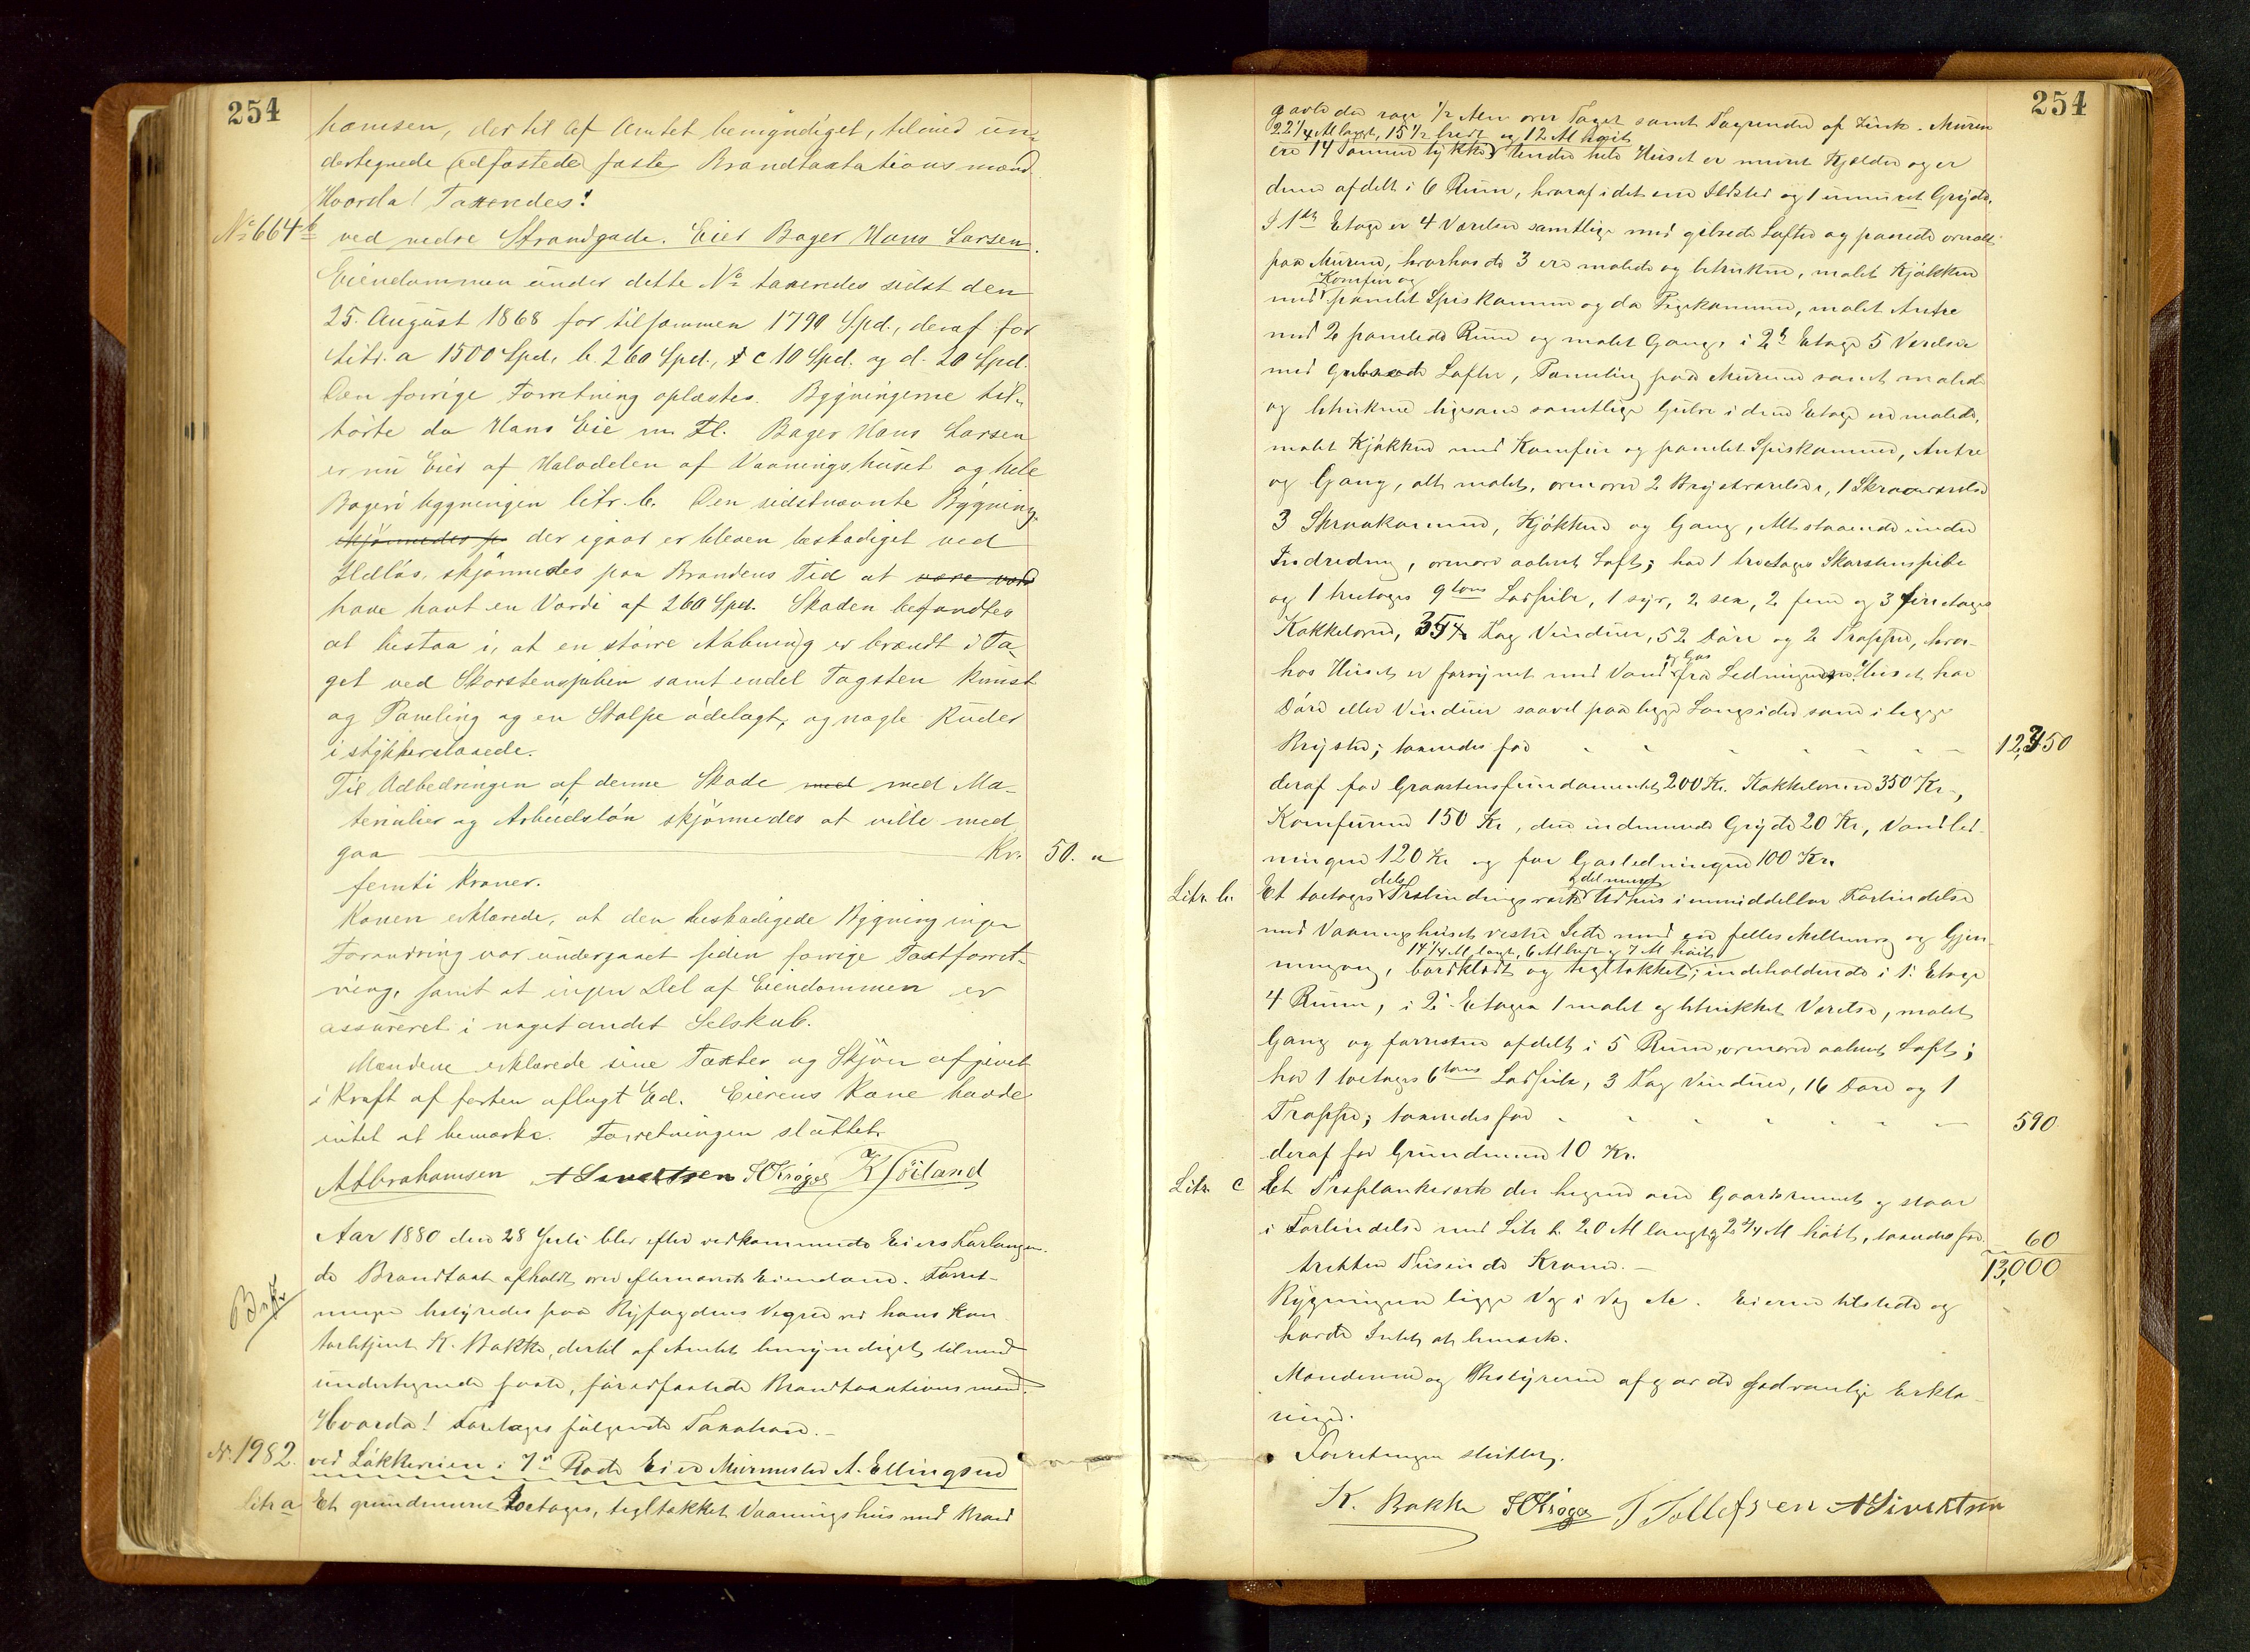 254
hamsen, der til af Amtet bemyndiget, tilmed un-
dertegnede edfæstede faste Brandtaxtationsmænd.
Hvorda! Taxeredes:
No 664 b ved nedre Strandgade. Eier Bager Hans Larsen.
Eiendommen under dette No taxeredes sidst den
25. August 1868 for tilsammen 1790 Spd., deraf for
Litr. a 1500 Spd., b. 260 Spd., c 10 Spd. og d. 20 Spd.
Den forrige Forretning oplæstes. Bygningerne til-
hørte da Hans Eie m. Fl. Bager Hans Larsen
er nu Eier af Halvdelen af Vaaningshuset og hele
Bageribygningen litr. b. Den sidstnævnte Bygning
der igaar er bleven beskadiget ved
Ildløs, skjønnedes paa Brandens Tid at
have havt en Værdi af 260 Spd. Skaden befandtes
at bestaa i, at en større Aabning er brændt i Ta-
get ved Skorstenspiben samt endel Tagsten knust
og Paneling og en Stolpe ødelagt, og nogle Ruder
i stykkerslaaede.
Til Udbedringen af denne Skade med Ma-
terialier og Arbeidsløn skjønnedes at ville med
gaa Kr. 50. "
femti Kroner.
Konen erklærede, at den beskadigede Bygning ingen
Forandring var undergaaet siden forrige Taxtforret-
ning, samt at ingen Del af Eiendommen er
assureret i noget andet Selskab.
Mændene erklærede sine Taxter og Skjøn afgivet
i Kraft af forten aflagt Ed. Eierens Kone havde
intet at bemærke. Forretningen sluttet.
A Abrahamsen A Sivertsen H Krøger K Föiland
Aar 1880 den 28 Juli blev efter vedkommende Eiers Forlangen-
de Brandtaxt afholdt over efternævnte Eiendom. Forret-
ningen bestyredes paa Byfogdens Vegne ved hans Kon-
torbetjent K. Bakke, dertil af Amtet bemyndiget tilmed
undertegnede faste, foredfæstede Brandtaxationsmænd.
Hvorda! Foretoges følgende Taxation.-
N. 1982. ved Løkkeveien i 7de Rode Eier Murmester A. Ellingsen
litr a Et grundmuret toetages, tegltækket Vaaningshus med Brand
254
gavle der rage 1/2 Alen over Taget samt Tagrender af Zink. Muren
22 1/4 Al langt, 15 1/2 bredt og 12 Al høit
ere 14 Tommer tykke. Under hele Huset er muret Kjælder og er
denne afdelt i 6 Rum, hvoraf i det ene Ildsted og 1 inmuret Gryde,
I 1ste Etage er 4 Værelser samtlige med gibsede Lofter og panelede overalt
paa Murene, hvorhos de 3 ere malede og betrukne, malet Kjøkken
Komfur og
med panelet Spiskammer og do Pigekammer, malet Antre
med 2 panelede Rum og malet Gang, i 2den Etage 5 Værelser
med gibsede Lofter, Paneling paa Murene samt malede
og betrukne ligesom samtlige Gulve i denne Etage ere malede,
malet Kjøkken med Komfur og panelet Spiskammer, Antre
og Gang, alt malet, ovenover 2 Brystværelser, 1 Skraaværelse
3 Skraakamre, Kjøkken og Gang, Alt staaende under
Indredning, ovenover aabent Loft; har 1 treetages Skorstenspibe
og 1 treetages 9toms Ladpibe, 1 syv, 2 sex, 2 fem og 3 fireetages
Kakkelovne, 35 Fag Vinduer, 52 Døre og 2 Trapper, hvor-
og Gas
hos Huset er forsynet med Vand fra Ledningen. Huset har
Døre eller Vinduer saavel paa begge Langsider som i begge
Bryster; taxeredes for 12,350
deraf for Graastensfundamentet 200 Kr. Kakkelovne 350 Kr.,
Komfurene 150 Kr, den indmurede Gryde 20 Kr, Vandled-
ningen 120 Kr og for Gasledningen 100 Kr.
dels og del muret
Litr. b. Et toetages Træbindingsværks Udhus i umiddelbar Forbindelse
med Vaaningshusets vestre Side med en fælles Mellemvæg og Gjen-
14 1/4 Al langt, 6 Al bredt og 7 Al høit
nemgang, bordklædt og tegltækket; indeholdende i 1. Etage
4 Rum, i 2. Etagen 1 malet og betrukket Værelse, malet
Gang og forresten afdelt i 5 Rum, ovenover aabent Loft;
har 1 toetages 6toms Ladpibe, 3 Fag Vinduer, 16 Døre og 1
Trappe; taxeredes for 590
deraf for Grundmuren 10 Kr.
Litr. c Et Træplankeværk der hegner om Gaardsrummet og staar
i Forbindelse med Litr b. 20 Al langt og 2 3/4 Al høit, taxeredes for 60
tretten Tusinde Kroner. - 13,000
Bygningen ligge Væg i Væg etc. Eieren tilstede og
havde Intet at bemærke.
Mændene og Bestyreren afgav de sædvanlige Erklæ-
ringer.
Forretningen sluttet.
K. Bakke H Krøger T Tollefsen A Sivertsen